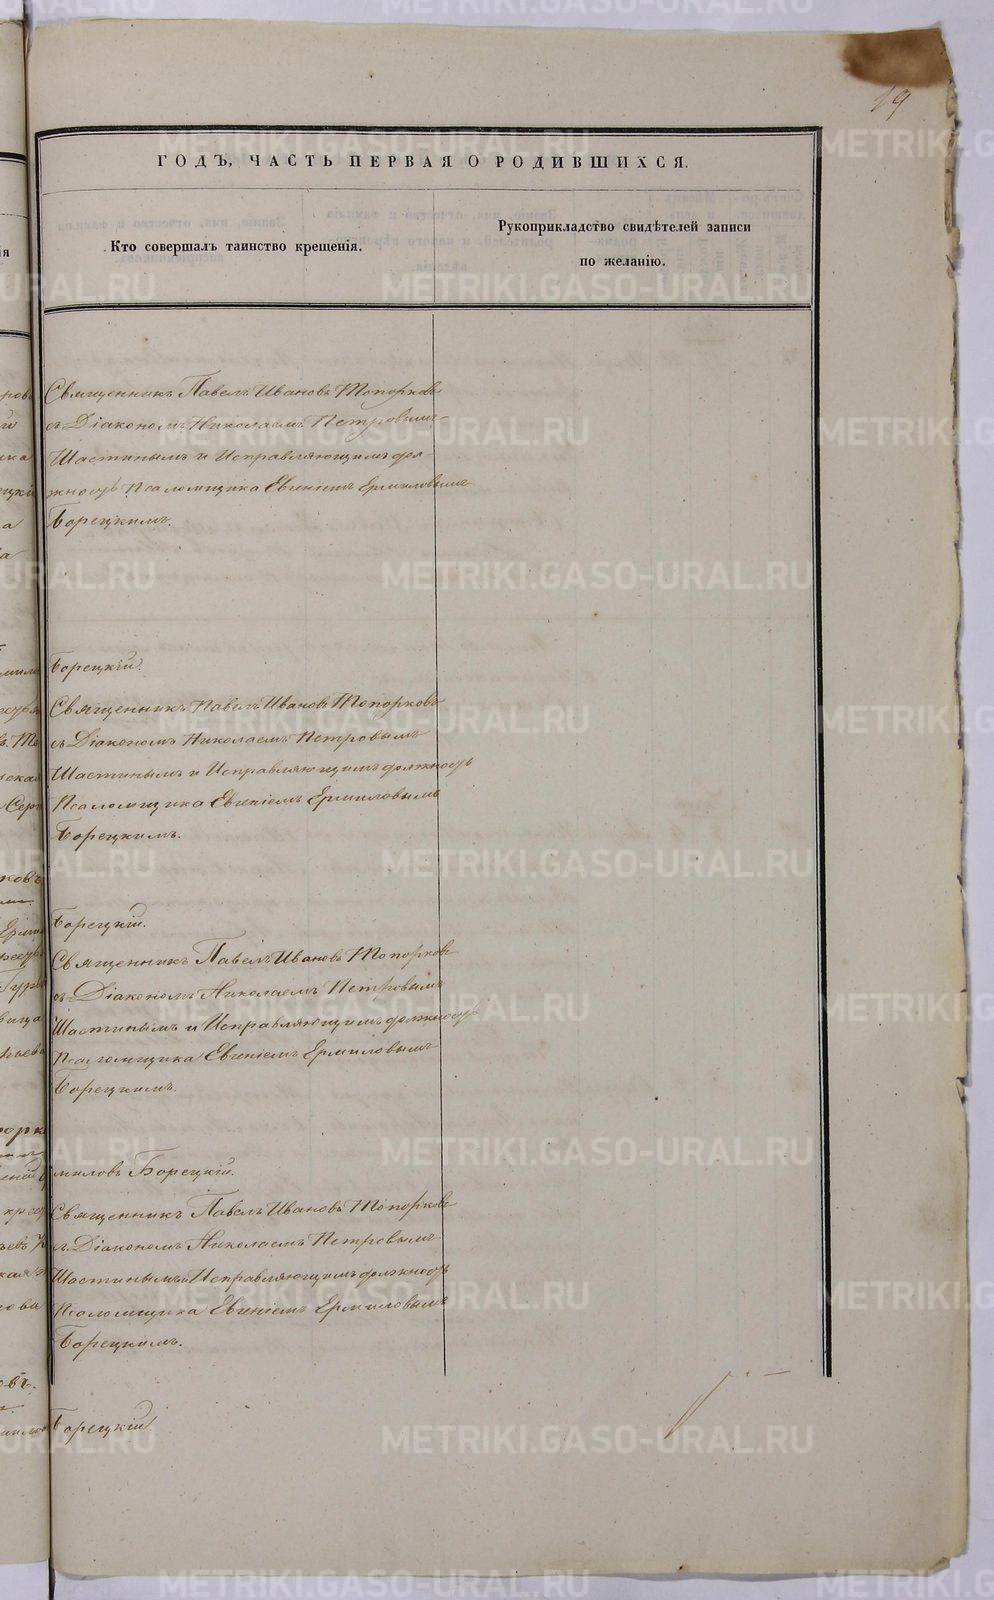 19
ГОДЪ, ЧАСТЬ ПЕРВАЯ О РОДИВШИХСЯ.
Кто совершалъ таинство крещенія.
Рукоприкладство свидѣтелей записи
по желанію.
Священникъ Павелъ Ивановъ Топорковъ
съ Діакономъ Николаемъ Петровымъ
Шастинымъ и Исправляющимъ дол-
жность Псаломщика Евгеніемъ Ермиловымъ
Борецкимъ.
Борецкій.
Священникъ Павелъ Ивановъ Топорковъ
съ Діакономъ Николаемъ Петровымъ
Шастинымъ и Исправляющимъ должность
Псаломщика Евгеніемъ Ермиловымъ
Борецкимъ.
Борецкій.
Священникъ Павелъ Ивановъ Топорковъ
съ Діакономъ Николаемъ Петровымъ
Шастинымъ и Исправляющимъ должность
Псаломщика Евгеніемъ Ермиловымъ
Борецкимъ.
миловъ Борецкій.
Священникъ Павелъ Ивановъ Топорковъ
съ Діакономъ Николаемъ Петровымъ
Шастинымъ и Исправляющимъ должность
Псаломщика Евгеніемъ Ермиловымъ
Борецкимъ.
Борецкій.
METRIKI.GASO-URAL.RU